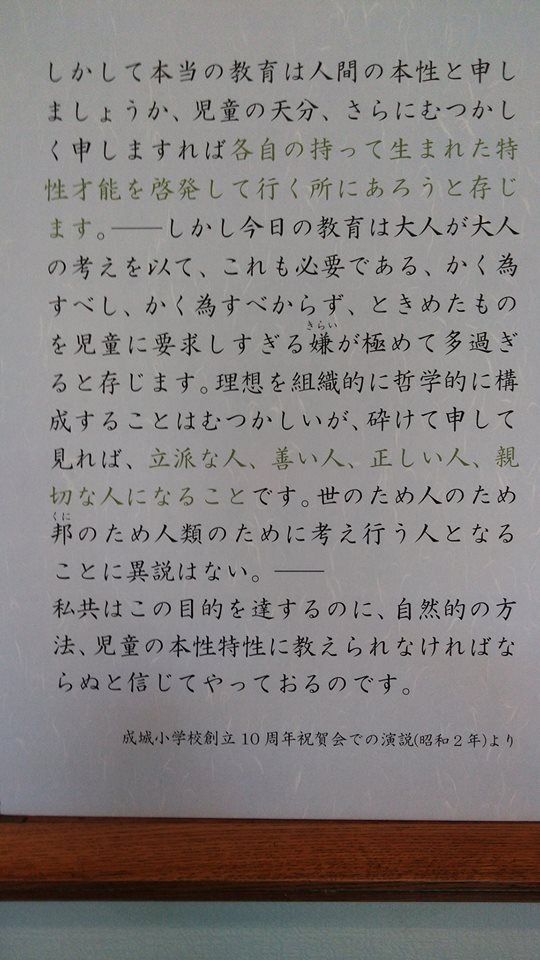 しかして本当の教育は人間の本性と申し
ましょうか、児童の天分、さらにむつかし
く申しますれば各自の持って生まれた特
性才能を啓発して行く所にあろうと存じ
ます。――しかし今日の教育は大人が大人
の考えを以て、これも必要である、かく為
すべし、かく為すべからず、ときめたもの
きらい
を児童に要求しすぎる嫌が極めて多過ぎ
ると存じます。理想を組織的に哲学的に構
成することはむつかしいが、砕けて申して
見れば、立派な人、善い人、正しい人、親
切な人になることです。世のため人のため
くに
邦のため人類のために考え行う人となる
ことに異説はない。――
私共はこの目的を達するのに、自然的の方
法、児童の本性特性に教えられなければな
らぬと信じてやっておるのです。
成城小学校創立10周年祝賀会での演説(昭和2年)より